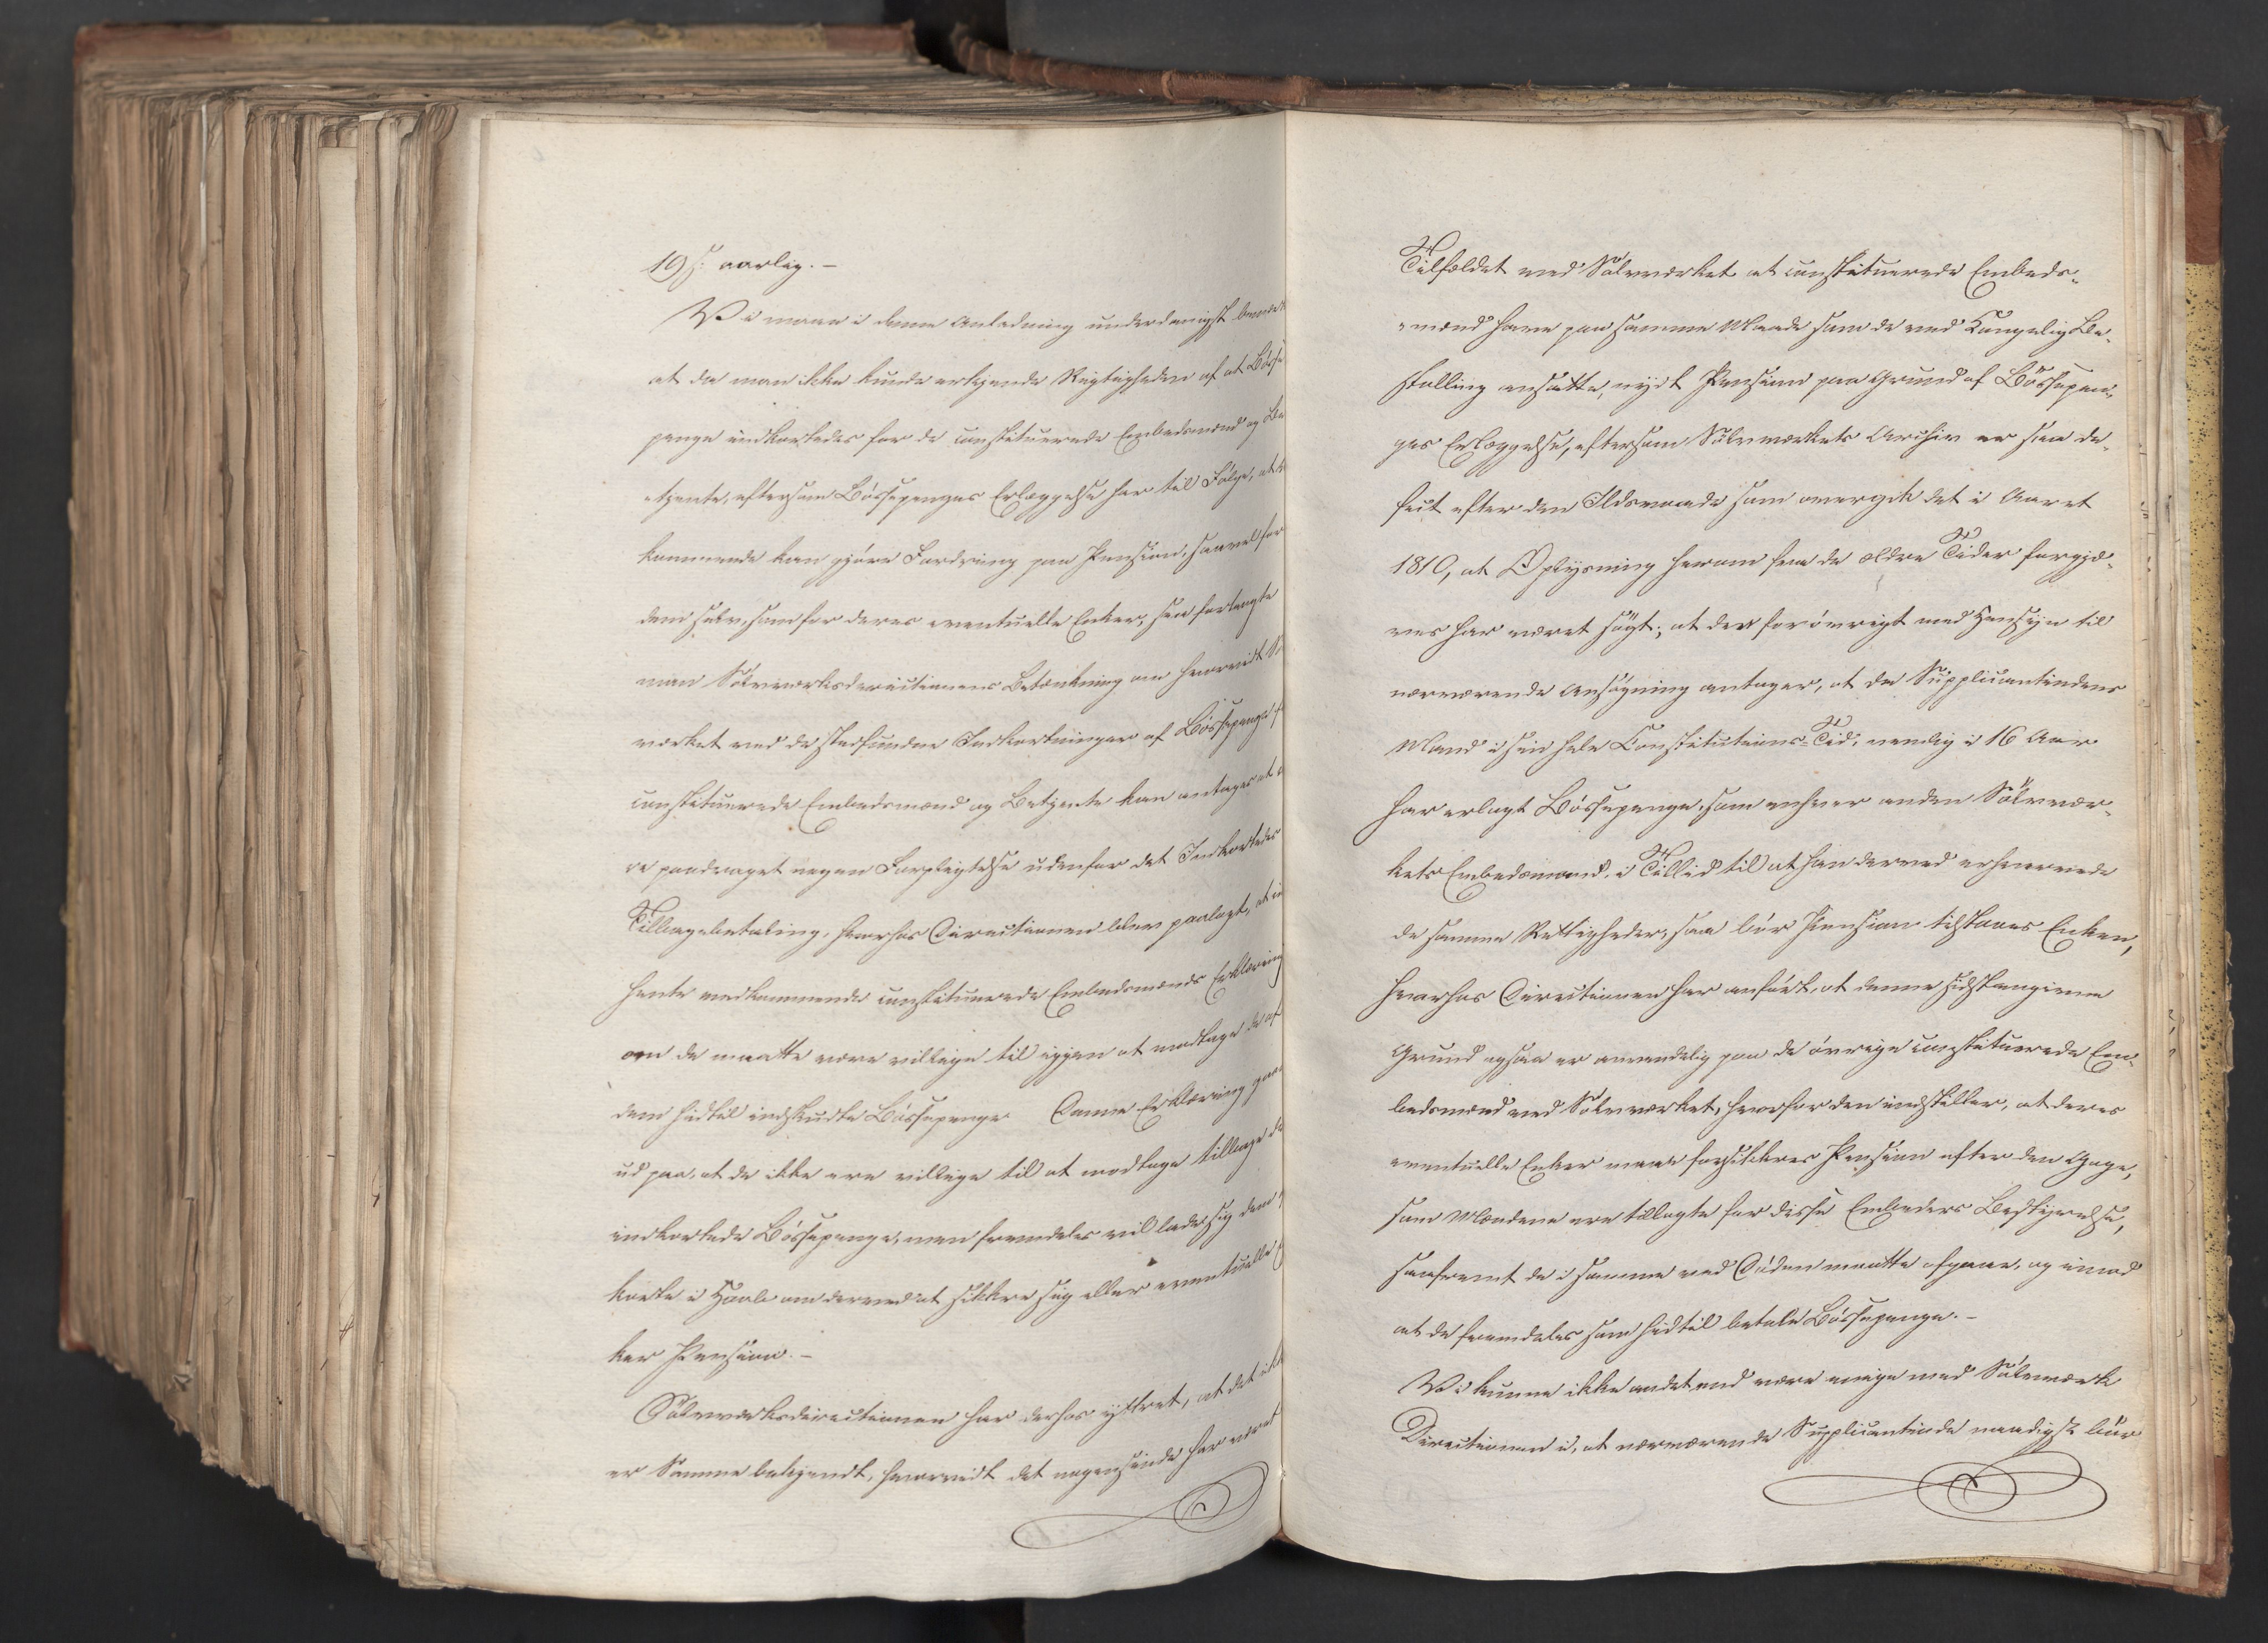 19 s: aarlig.-
Vi maae i denne Anledning underdanigst bemærke
at da man ikke kunde erkjende Rigtigheden af at Bösse
penge indkortedes for de constituerede Embedsmænd og Be
tjente, eftersom Bössepenges Erlæggelse har til Fölge, at
kommende kan gjöre Fordring paa Pension, saavel for
dem selv, som for deres eventuelle Enker, saa forlangte
man Sölvværksdirectionens Betænkning om hvorvidt Sö
værket ved de stedfundne Indkortninger af Bössepenge f
constituerede Embedsmænd og Betjente kan antages at
re paadraget nogen Forpligtelse udenfor det Indkortedes
Tilbagebetaling, hvorhos Directionen blev paalagt, at ind
hente vedkommende constituerede Embedsmænds Erklæring
om de maatte være villige til igjen at modtage de af
dem hidtil indskudte Bössepenge. Denne Erklæring gaaer
ud paa, at de ikke ere villige til at modtage tilbage de
indkortede Bössepenge, men fremdeles vil lade sig dem
korte i Haab om derved at sikkre sig eller eventuelle
ker Pension.-
Sölvværksdirectionen har derhos yttret, at det ikke
er Samme bekjendt, hvorvidt det nogensinde har været
Tilfældet ved Sölvværket at constituerede Embeds-
mænd have paa samme Maade som de ved Kongelig Be-
stalling ansatte, nydt Pension paa Grund af Bössepen-
ges Erlæggelse, eftersom Sölvværkets Archiv er saa de-
fect efter den Ildsvaade som overgik det i Aaret
1810, at Oplysning herom fra de ældre Tider forgjæ-
ves har været sögt; at den forövrigt med Hensyn til
nærværende Ansögning antager, at da Supplicantindens
Mand i sin hele Constitutions-Tid, nemlig i 16 Aar
har erlagt Bössepenge, som enhver anden Sölvvær-
kets Embedsmand, i Tillid til at han derved erhvervede
de samme Rettigheder, saa bör Pension tilstaaes Enken,
hvorhos Directionen har anfört, at denne sidstangivne
Grund ogsaa er anvendelig paa de övrige constituerede Em-
bedsmænd ved Sölvværket, hvorfor den indstiller, at deres
eventuelle Enker maae forsikkres Pension efter den Gage,
som Mændene ere tillagte for disse Embeders Bestyrelse,
saafremt de i samme ved Döden maatte afgaae, og imod
at de fremdeles som hidtil betale Bössepenge.-
Vi kunne ikke andet end være enige med Sölvværks
Directionen i, at nærværende Supplicantinde naadigst bör